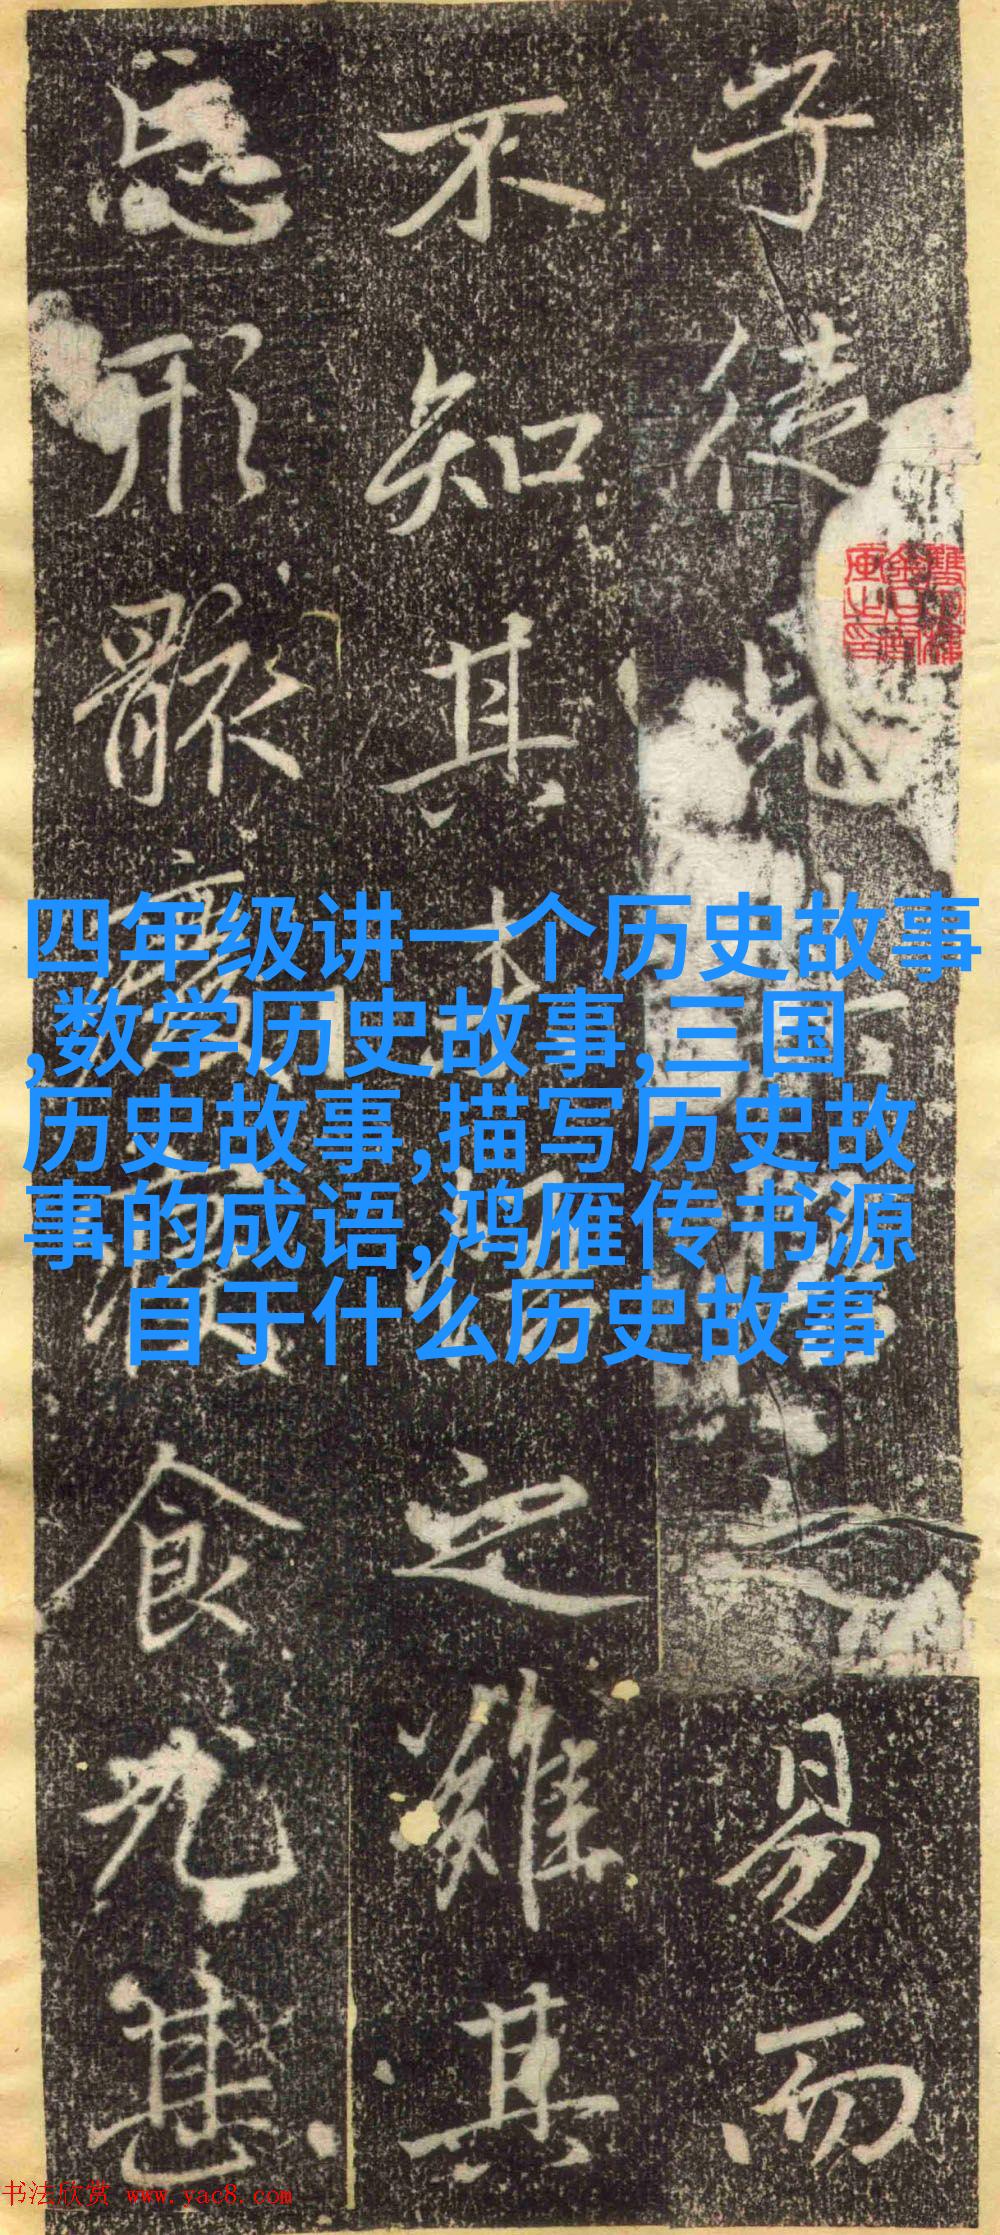 子徒見之易而
不知其本之難其
忘形骸廢寢食尤甚
四年级讲一个历史故事
,数学历史故事,三国
历史故事,描写历史故
事的成语,鸿雁传书源
自于什么历史故事
书法欣赏 www.yac8.com